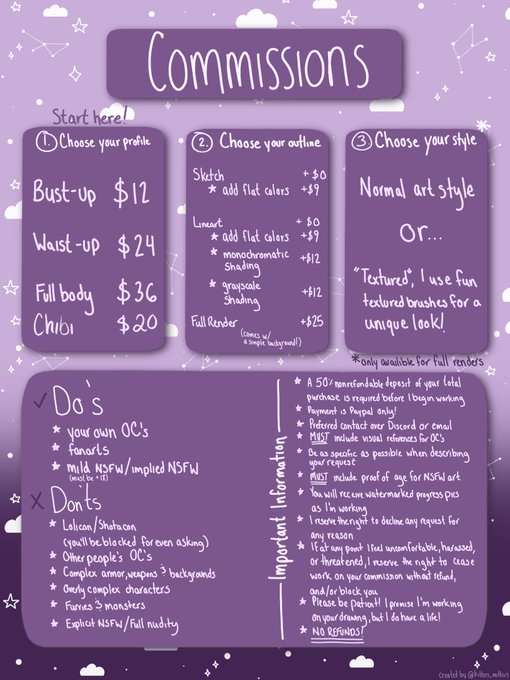 Commissions
Start here!
1. Choose your profile
Bust-up $12
Waist-up $24
Full body $36
Chibi $20
2. Choose your outline
Sketch + $0
add flat colors +$9
Lineart + $0
add flat colors +$9
monochromatic
shading +$12
grayscale
shading +$12
Full Render +$25
(comes w/
a simple background!)
3 Choose your style
Normal art style
Or...
"Textured", I use fun
textured brushes for a
unique look!
*only available for full renders
Do's
your own OC's
fanarts
mild NSFW/implied NSFW
(must be +18)
Dont's
Lolicon/Shotacon
(you'll be blocked for even asking)
Other people's OC's
Complex armor, weapons & backgrounds
Overly complex characters
Furries & monsters
Explicit NSFW/Full nudity
Important Information
A 50% nonrefundable deposit of your total
purchase is required before I begin working
Payment is Paypal only!
Preferred contact over Discord or email
MUST include visual references for OC's
Be as specific as possible when describing
your request
MUST include proof of age for NSFW art
You will receive watermarked progress pics
as I'm working
I reserve the right to decline any request for
any reason
If at any point I feel uncomfortable, harassed,
or threatened, I reserve the right to cease
work on your commission without refund,
and/or block you
Please be patient! I promise I'm working
on your drawing, but I do have a life!
NO REFUNDS!
created by